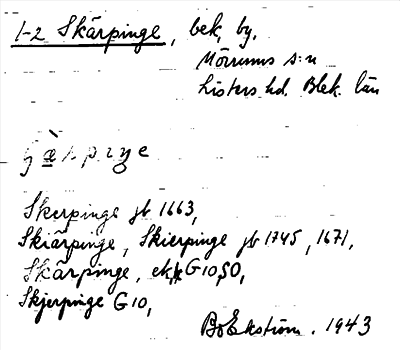 1-2 Skärpinge, bek, by,
Mörrums s:n
Listers hd. Blek. län
Skerpinge jb 1663,
Skiärpinge, Skierpinge jb 1745, 1671,
Skärpinge, ek, G10, SO,
Skjerpinge G10,
Bo Ekström. 1943